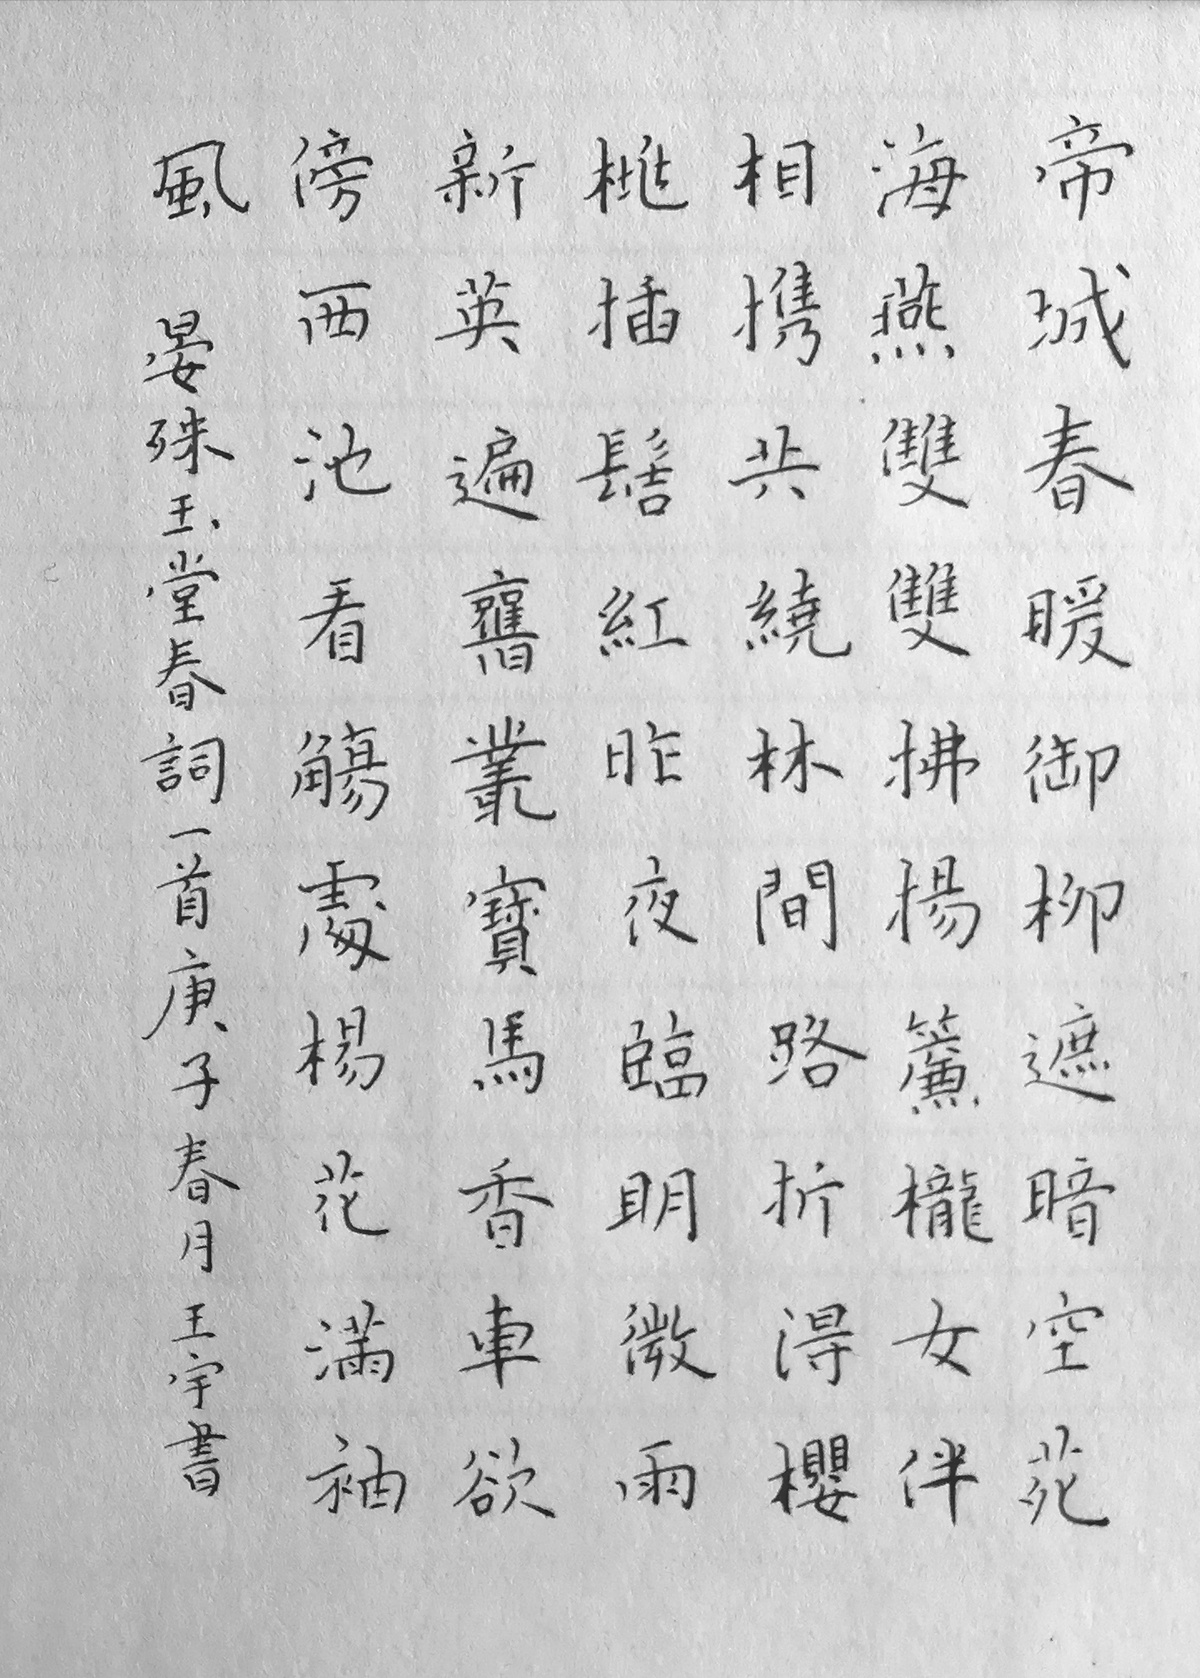 帝城春暖御柳遮暗空苑
海燕雙雙拂揚簾櫳女伴
相携共繞林間路折得櫻
桃插髻紅昨夜臨明微雨
新英遍舊叢寶馬香車欲
傍西池看觴處楊花滿袖
風
晏殊玉堂春詞一首庚子春月王宇書